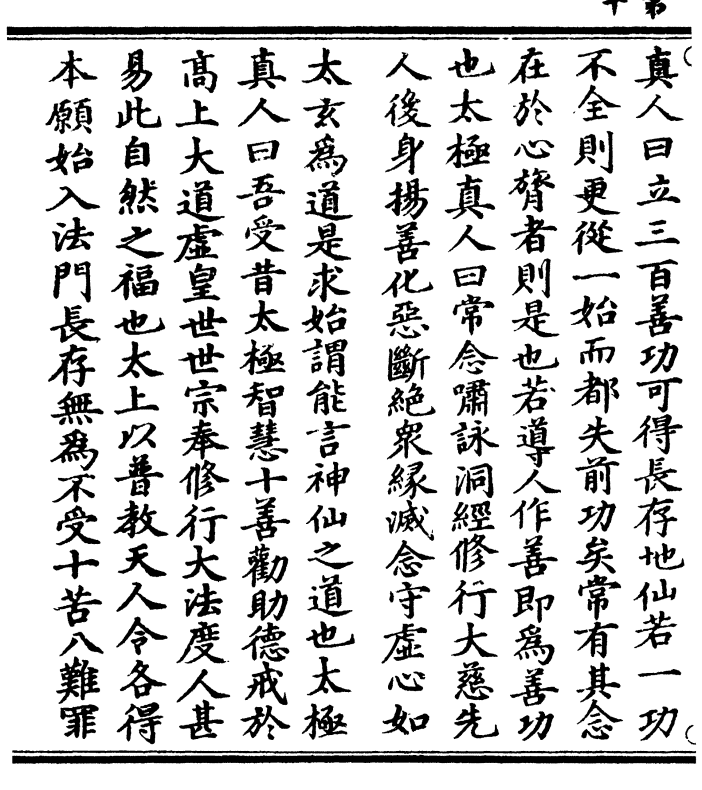 真人曰立三百善功可得長存地仙若一功
不全則更從一始而都失前功矣常有其念
在於心膂者則是也若導人作善即為善功
也太極真人曰常念嘯詠洞經修行大慈先
人後身揚善化惡斷絶衆緣滅念守虛心如
太玄為道是求始謂能言神仙之道也太極
真人曰吾受昔太極智慧十善勸助德戒於
高上大道虛皇世世宗奉修行大法度人甚
易此自然之福也太上以普教天人令各得
本願始入法門長存無為不受十苦八難罪